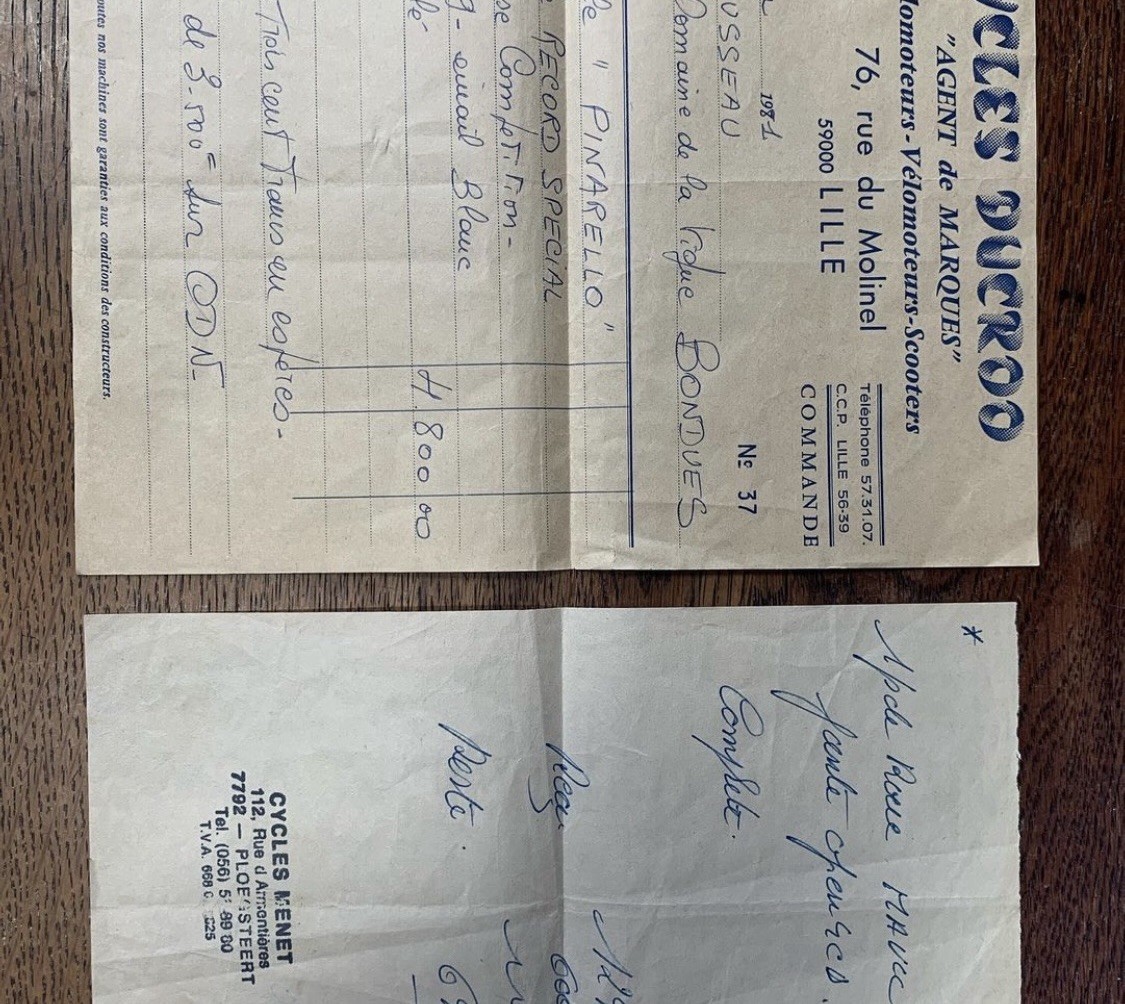 YCLES DUCROO
"AGENT de MARQUES"
lomoteurs-Vélomoteurs-Scooters
76, rue du Molinel
59000 LILLE
Téléphone 57.31.07.
C.C.P. LILLE 56-39
COMMANDE
1981
Nº 37
USSEAU
Domaine de la Vigne BONDUES
de " PINARELLO "
RECORD SPECIAL
se Compétition -
9 - émail Blanc
lé
4.800 00
Trois cent Francs en espèces -
de 3.500 = sur ODN -
outes nos machines sont garanties aux conditions des constructeurs.
*
Roue MAVIC
Jante
Complète.
Reçu
Reste.
CYCLES MENET
112, Rue d'Armentières
7792 — PLOEGSTEERT
Tel. (056) 5 89 80
T.V.A. 668